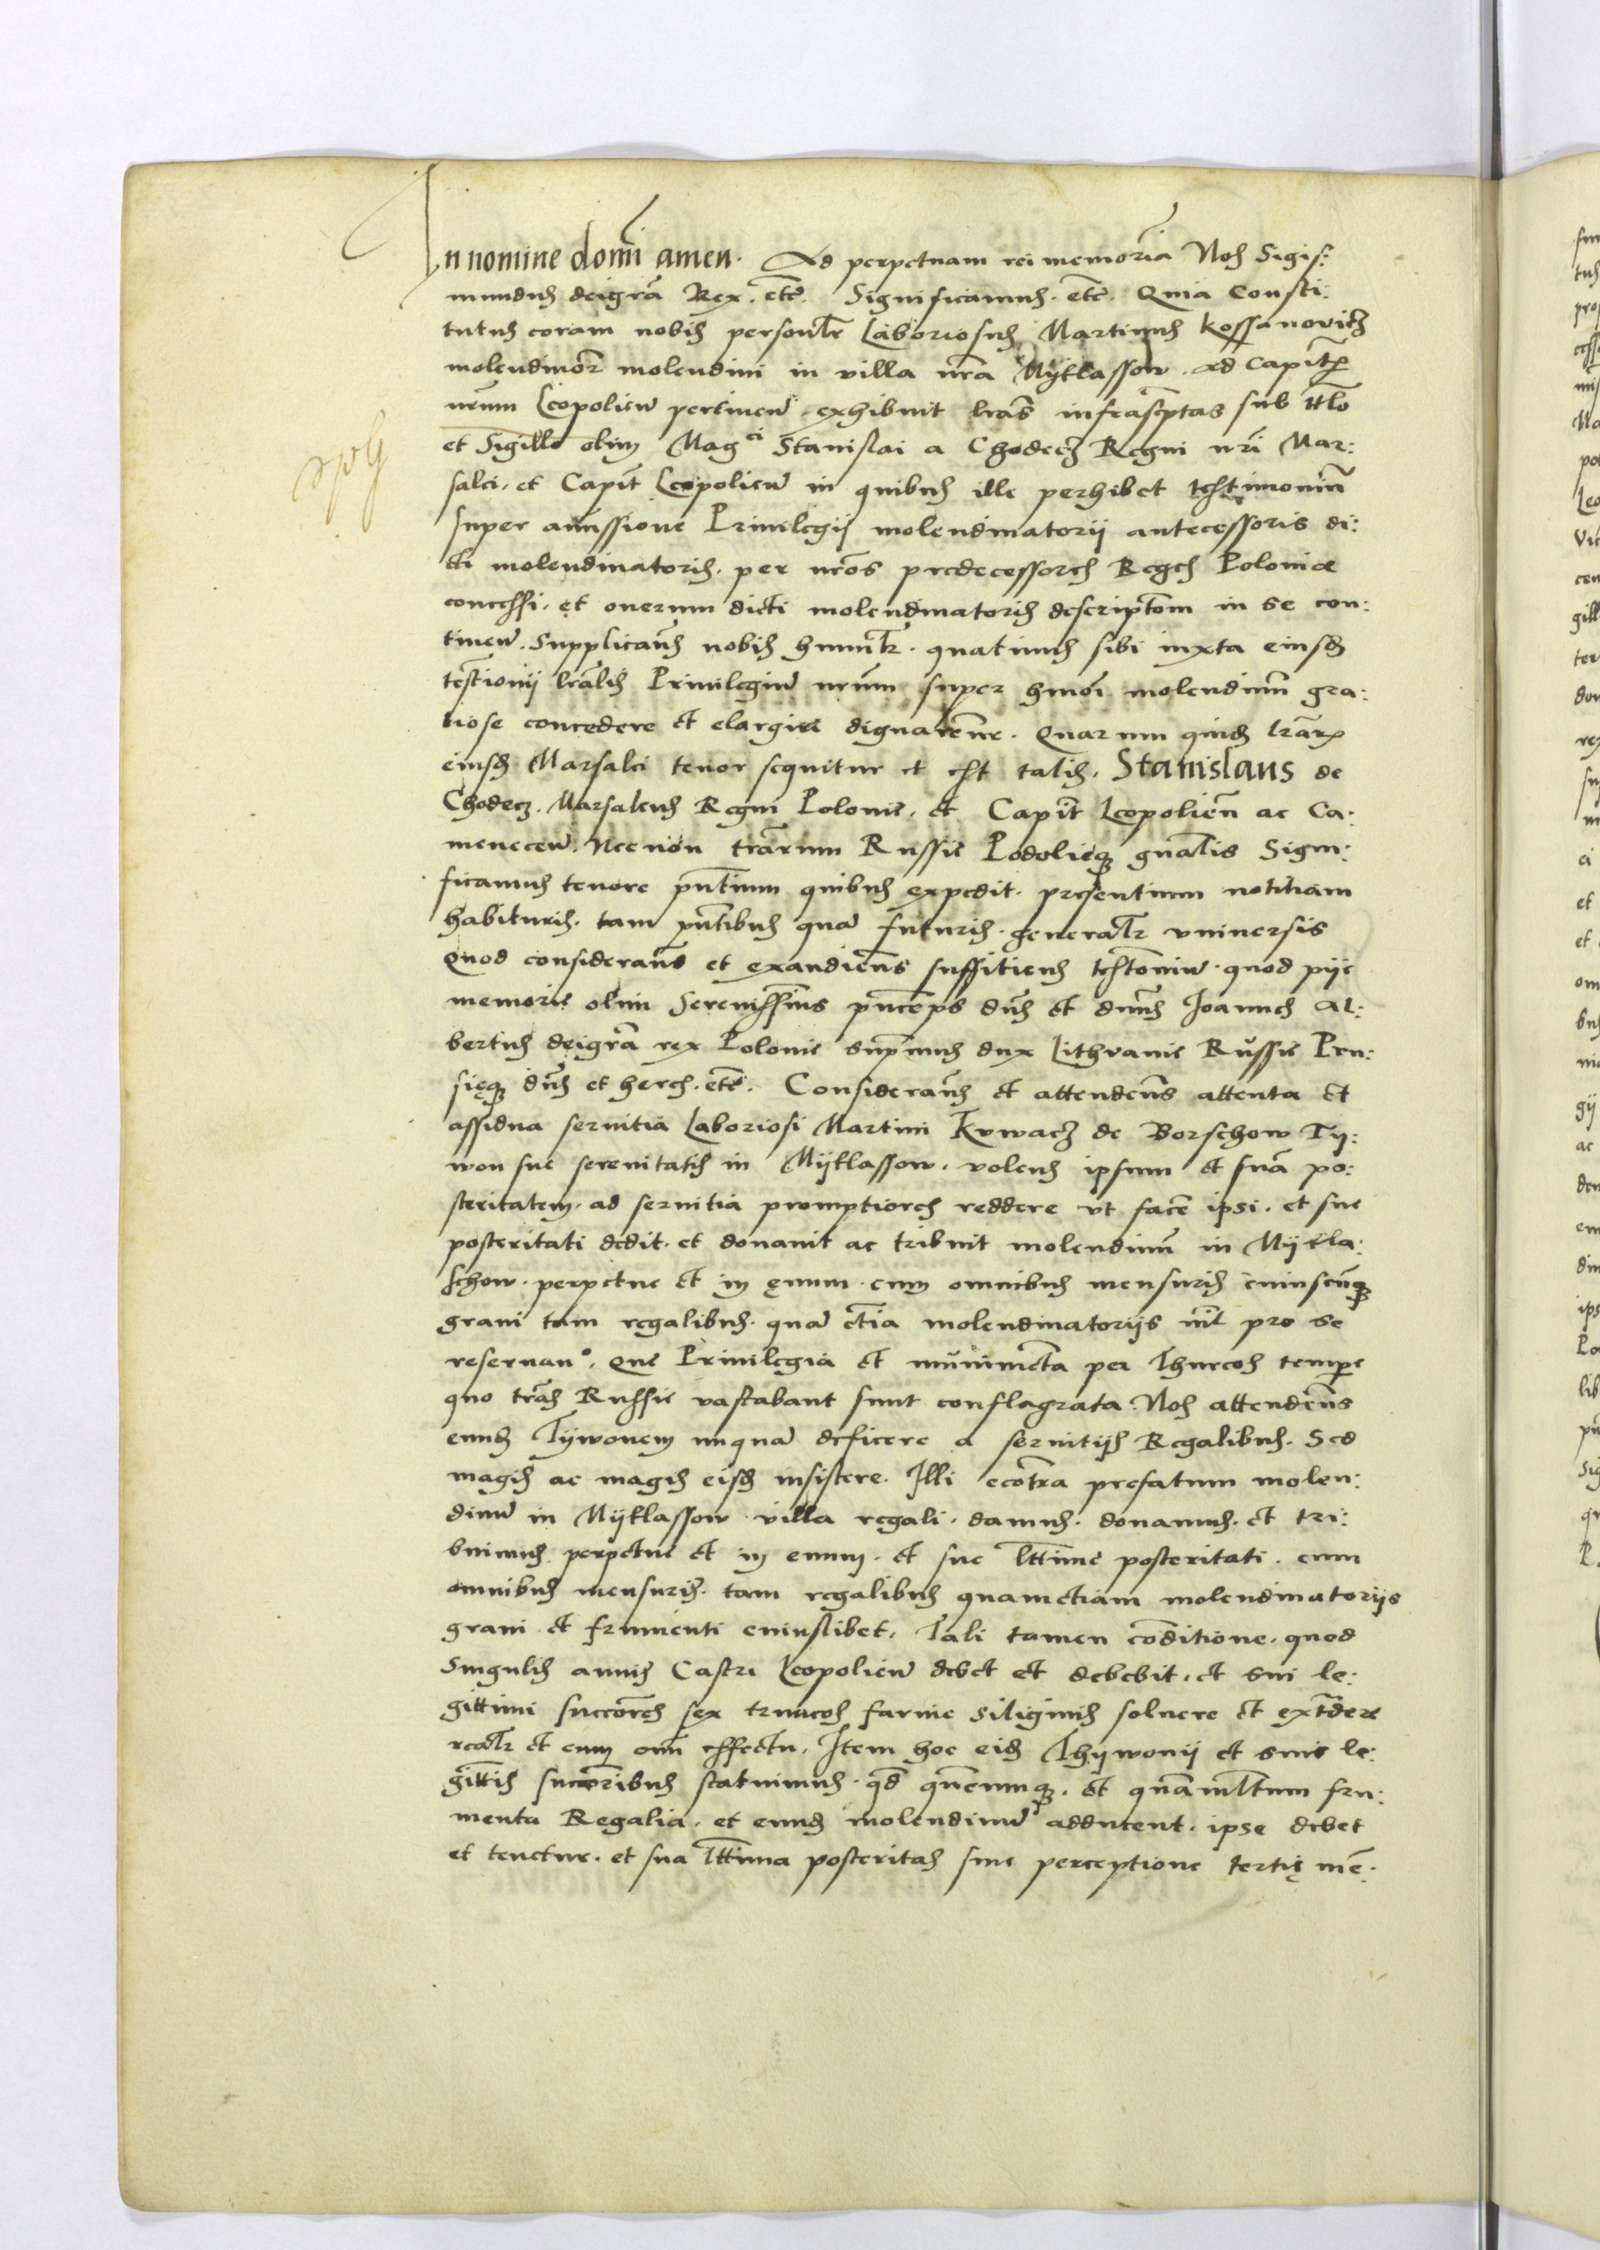 In nomine domĩ amen. Ad perpetuam rei memoriã Nos Sigis:
mundus deigrã Rex. etc̃. Significamus. etc̃. Quia Consti:
tutus coram nobis personlr̃ Laboriosus Martinus Kossanovicz
molendinor̃ molendini in villa nrã Mytlassow. ad Capit̃
nrũm Leopolieñ pertineñ. exhibuit lrãs infrascp̃tas sub tlt̃o
et Sigillo olim Magci Stanislai a Chodecz Regni nrĩ Mar:
salci. et Capit̃ Leopolieñ in quibus ille perhibet testimoniũ
super amissione Privilegij molendinatorij antecessoris di:
cti molendinatoris. per nrõs predecessores Reges Poloniae
concessi. et onerum dicti molendinatoris descriptõm in se con:
tineñ. Supplicañs nobis humilr̃. quatinus sibi iuxta eiusd
testĩonij lrãlis Privilegiũ nrũm super hmõi molendinũ gra:
tiose concedere et elargiri dignarẽnr. Quarum quid lrãrũ
eiusd Marsalci tenor sequitur et est talis. Stanislaus de
Chodecz. Marsalcus Regni Polonie. et Capit̃ Leopolieñ ac Ca:
meneceñ. Necnon trãrum Russie Podolieq̃ gnãlis Signi:
ficamus tenore pñtium quibus expedit. presentium notitiam
habituris. tam pñtibus quã futuris. generalr̃ universis
Quod considerañs et exaudieñs suffitiens testõniũ. quod pije
memorie olim Serenissim̃s pñceps dñs et dnũs Joannes Al:
bertus deigrã rex Polonie suprẽmus dux Lithvanie Russie Pru:
sieq̃ dñs et heres. etc̃. Considerañs et attendeñs attenta et
assidua servitia Laboriosi Martini Kvwacz de Borschow Ty:
won sue serenitatis in Mytlassow. volens ipsum et suã po:
steritatem. ad servitia promptiores reddere vt facẽ ipsi. et sue
posteritati dedit. et donavit ac tribuit molendinũ in Mytla:
schow. perpetue et in ęvum. cum omnibus mensuris cuiuscũq̃
grani tam regalibus. quã etĩa molendinatoriis nil̃ pro se
reservan°. Que Privilegia et munimẽta per Thurcos temp̃e
quo trãs Russie vastabant sunt conflagrata. Nos attendeñs
eund Tywonem nuquã deficere a servitijs Regalibus. Sed
magis ac magis eisd insistere. Illi ecõtra prefatum molen:
dinũ in Mytlassow villa regali. damus. donamus. et tri:
buimus perpetue et in evum. et sue lt̃time posteritati. cum
omnibus mensuris. tam regalibus quametiam molendinatoriis
grani et frumenti cuiuslibet. Tali tamen cõditione. quod
Singulis annis Castri Leopolieñ debet et debebit. et sui le:
gittimi succõres sex truncos farine siliginis solvere et extr̃dere
realr̃ et cum om̃i effectu. Item hoc eid Thywonij et suis le:
gittĩs succõribus statuimus. qd̃ quẽcunq̃. et quãmltũm fru:
menta Regalia. et eund molendinũ adducent. ipse debet
et tenetur. et sua lt̃tima posteritas sine perceptione tertię mẽ.